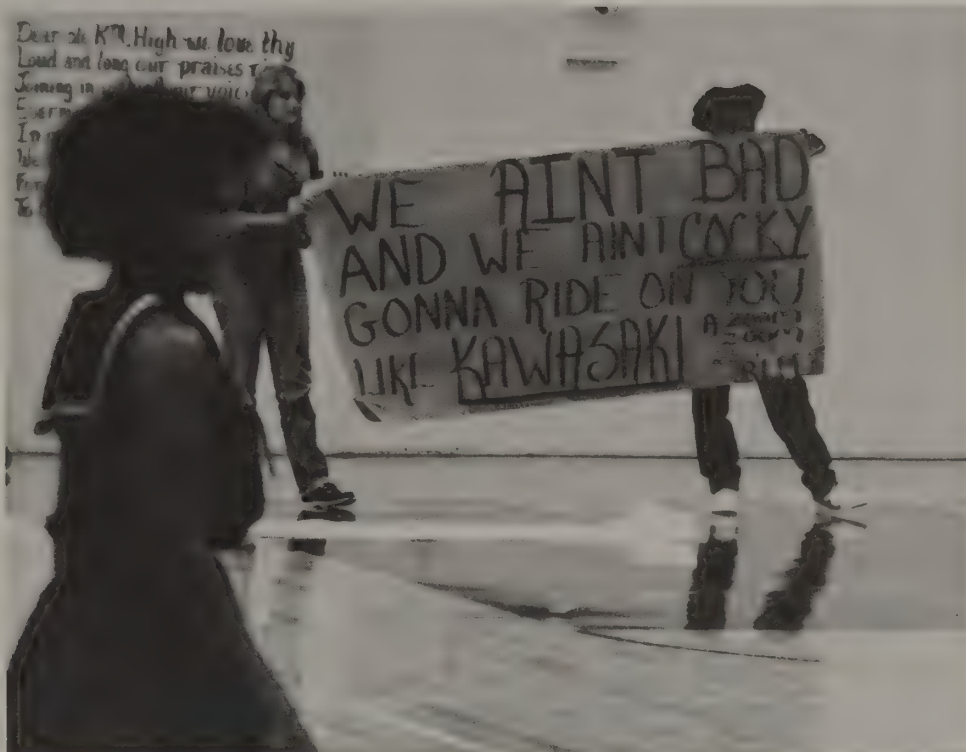 Dear ole K.M. High we love thy
Loud and long our praises
Joining in our
In
We
WE AINT BAD
AND WE AINT COCKY
GONNA RIDE ON YOU
LIKE KAWASAKI
A ZOOM
ZOOM